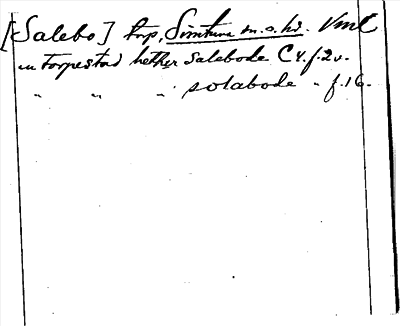 [Salebo] torp, Simtuna sn. o. hd. Vml
in Torpestad hether Salebode C 4. f. 2 v.
" " " solabode " f. 16.